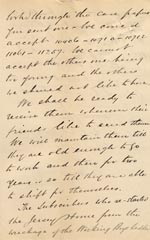 looked through the case papers
you sent me & we should
accept 10356 - 10971 - 10912
11041 & 11257. We cannot
accept the others one being
too young and the others
we should not like to have
We shall be ready to
receive them whenever their
friends like to send them
We will maintain them till
they are old enough to go
to work and then for two
years or so till they are able
to shift for themselves.
The Subscribers who re-started
the Jersey Home from the
wreckage of the